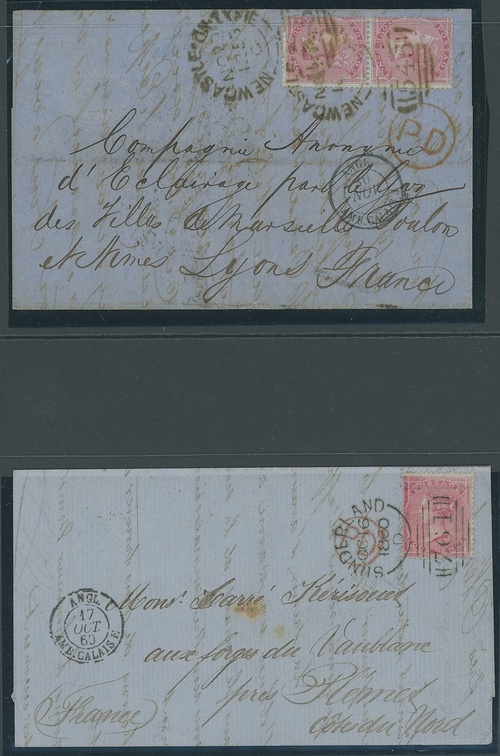 NEWCASTLE-ON-TYNE
NEWCASTLE
545
PD
Compagnie Anonyme
d'Eclairage par le Gaz
des Villes de Marseille Toulon
et Nimes Lyons France
ANGL.
AMB. CALAIS
SUNDERLAND
OC 16
1860
POSTAGE
PD
ANGL.
17
OCT
60
AMB. CALAIS E.
Monsr. Carré Kérisouet
aux forges du Vaublanc
près Plémet
France
Côtes du Nord